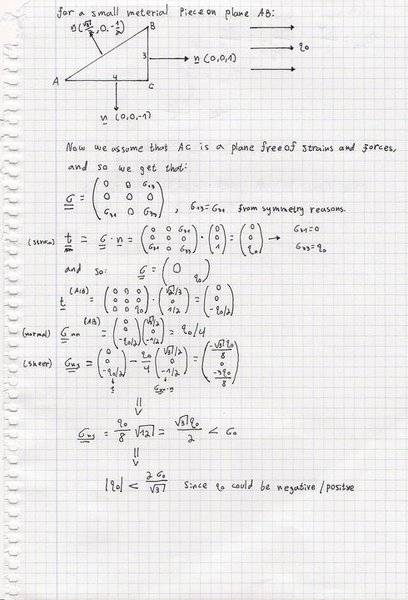 for a small meterial piece on plane AB:
n(√3/2, 0, -1/2)
B
3
n (0,0,1)
q₀
A
4
C
n (0,0,-1)
Now we assume that AC is a plane free of strains and forces,
and so we get that:
σ = (0 0 σ₁₃; 0 0 0; σ₃₁ 0 σ₃₃), σ₁₃=σ₃₁ from symmetry reasons.
t = σ · n = (0 0 σ₃₁; 0 0 0; σ₃₁ 0 σ₃₃) · (0; 0; 1) = (0; 0; q₀) → σ₃₁=0
σ₃₃=q₀
and so: σ = (0 q₀)
t^(AB) = (0 0 0; 0 0 0; 0 0 q₀) · (√3/2; 0; -1/2) = (0; 0; -q₀/2)
(normal) σnn^(AB) = (0; 0; -q₀/2)(√3/2; 0; -1/2) = q₀/4
(sheer) σns = (0; 0; -q₀/2) - q₀/4 (√3/2; 0; -1/2) = (-√3q₀/8; 0; -3q₀/8)
t σnn·n
⇓
σns = q₀/8 √12 = √3q₀/2 < σ₀
⇓
|q₀| < 2σ₀/√3 since q₀ could be negative/positive